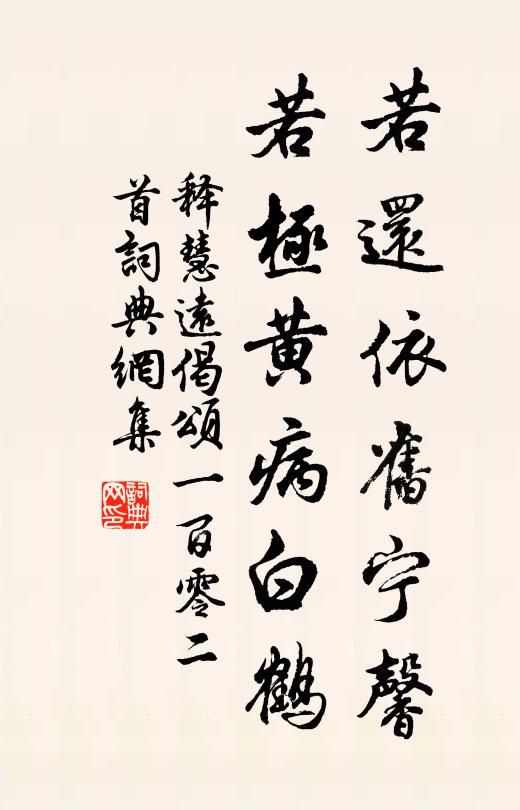 若還依舊宁馨
若極黄病白鶴
释慧遠偈頌一百零二
首詞典網集
詞典网印